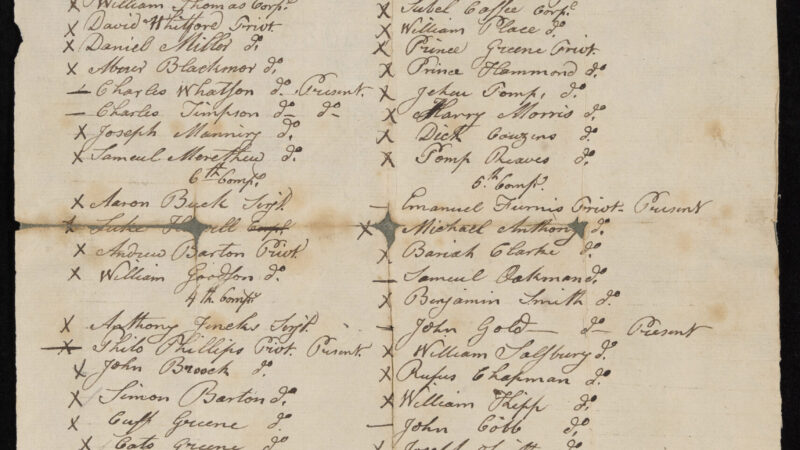 x William Thomas Corpl.
x David Whitford Privt.
x Daniel Miller do.
x Abner Blackmor do.
— Charles Whatson do— Present.
— Charles Timpson do— do—
x Joseph Mannin do.
x Sameul do.
6th Comp.
x Aaron Buck Serjt.
x Luke Corpl.
x Andrew Barton Privt.
x William Goodson do.
4th Comp.
x Anthony Serjt.
— Philo Phillips Privt. Present.
x John Broock do.
x Simon Barton do.
x Cuff Greene do.
x Cato Greene do.
x Jubel Cassie Corpl.
x William Place do.
x Prince Greene Privt.
x Prince Hammond do.
x Jehew Pomp, do.
x Harry Morris, do.
x Dick Couzens do.
x Pomp Reaves do.
5th Comp.
— Emanuel Furnis Privt— Present
x Michael Anthony do.
x Bariah Clarke do.
— Sameul Oakman do.
x Benjamin Smith do.
— John Gold— do— Present
x William Salsbury do.
x Rufus Chapman do.
x William Thipp do.
— John Cobb do.